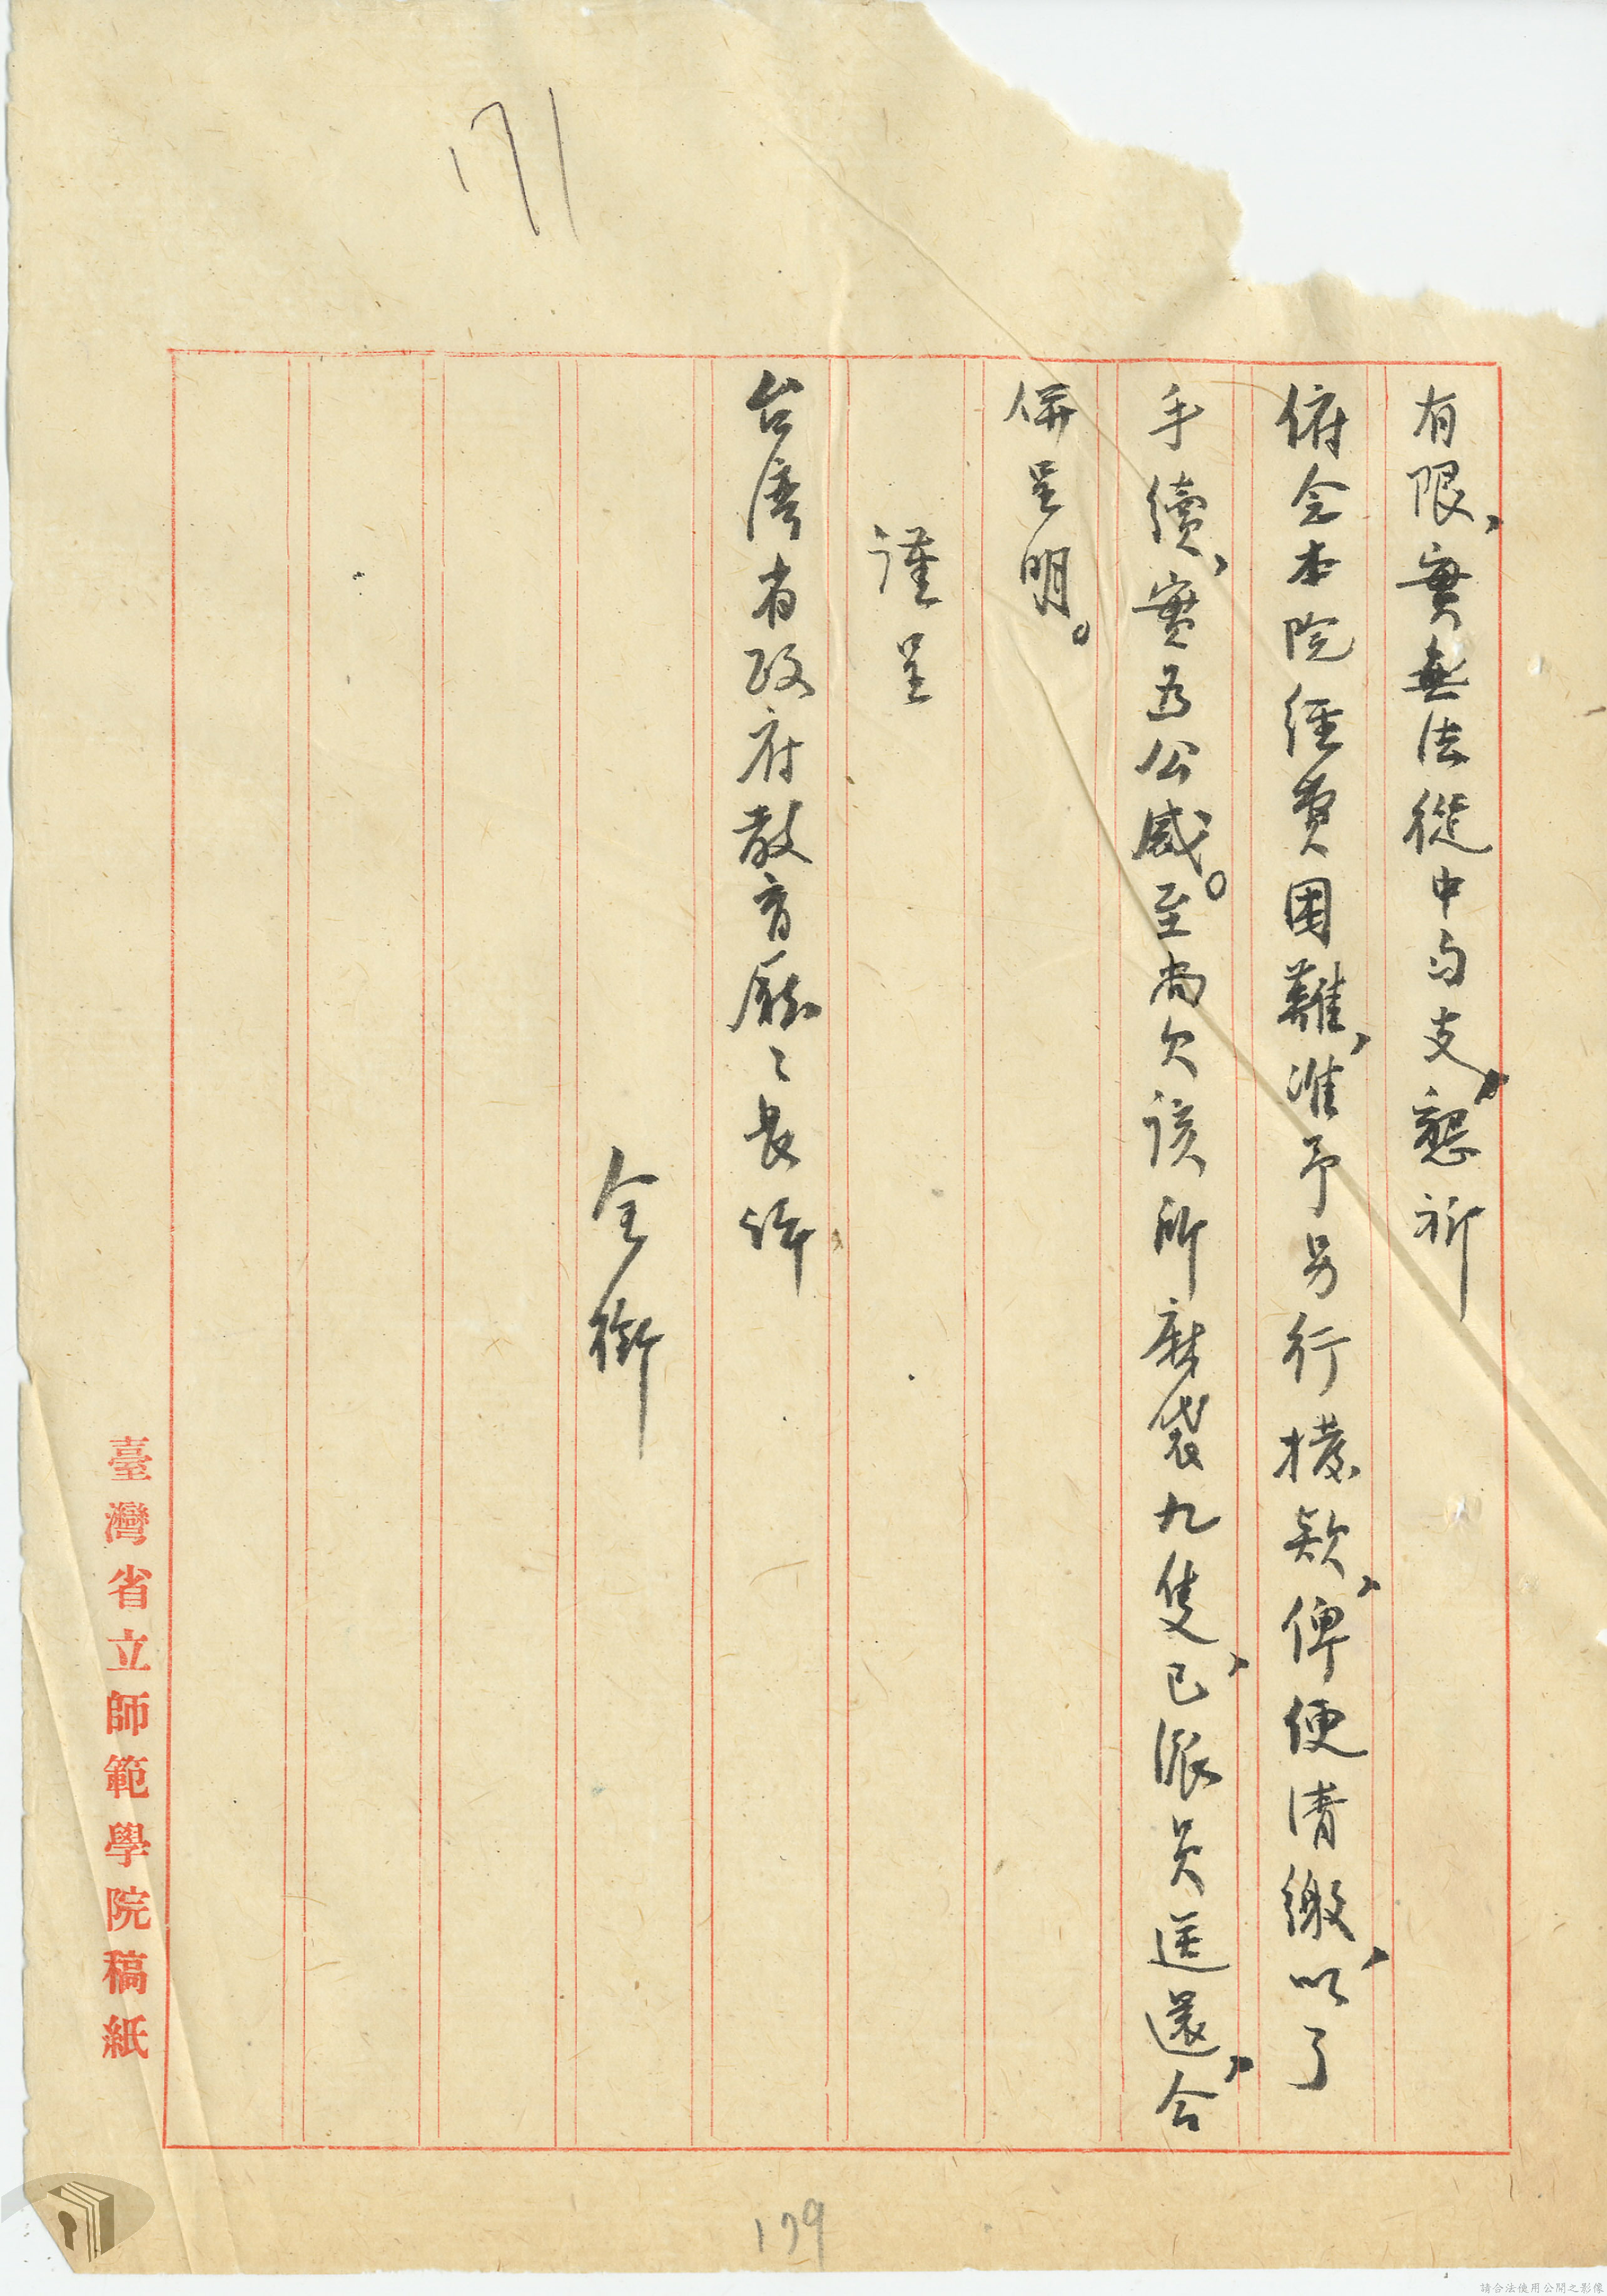 171
有限，實無法從中勻支，懇祈
俯念本院經費困難，准予另行撥款，俾便清繳，以了
手續，實為公感。至尚欠該所麻袋九隻，已派員送還，合
併呈明。
謹呈
台灣省政府教育廳〻長許
全銜
臺灣省立師範學院稿紙
179
請合法使用公開之影像